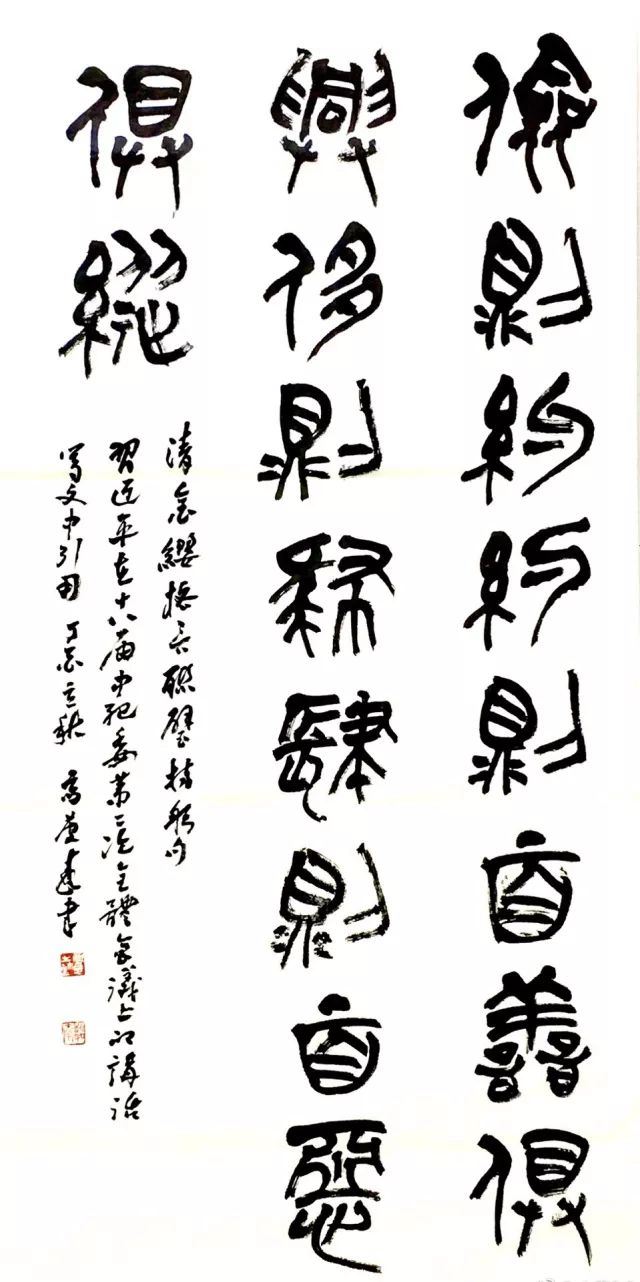 儉則約約則百善俱
興侈則肆肆則百惡
俱縱
清金纓格言聯璧持躬句
習近平在十八屆中紀委第二次全體會議上的講話
等文中引用 丁酉立秋 高慶春書